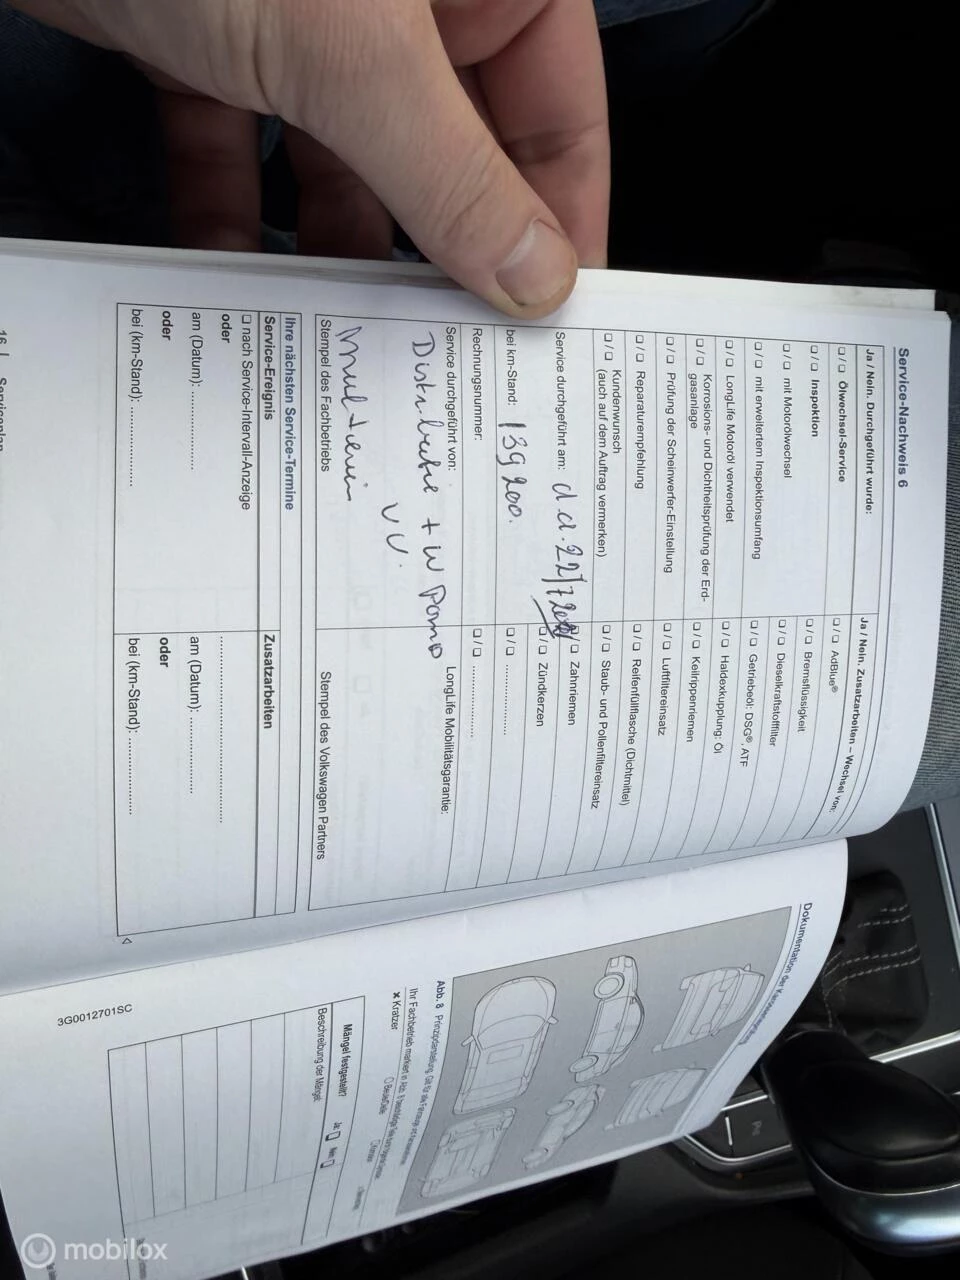 Service-Nachweis 6
Ja / Nein. Durchgeführt wurde:
❑ / ❑ Ölwechsel-Service
❑ / ❑ Inspektion
❑ / ❑ mit Motorölwechsel
❑ / ❑ mit erweitertem Inspektionsumfang
❑ / ❑ LongLife Motoröl verwendet
❑ / ❑ Korrosions- und Dichtheitsprüfung der Erd-
gasanlage
❑ / ❑ Prüfung der Scheinwerfer-Einstellung
❑ / ❑ Reparaturempfehlung
❑ / ❑ Kundenwunsch
(auch auf dem Auftrag vermerken)
Service durchgeführt am: d.d. 22/7
bei km-Stand: 139200.
Rechnungsnummer:
Service durchgeführt von:
Distributie + W Pomp
VV.
Stempel des Fachbetriebs
Ja / Nein. Zusatzarbeiten – Wechsel von:
❑ / ❑ AdBlue®
❑ / ❑ Bremsflüssigkeit
❑ / ❑ Dieselkraftstofffilter
❑ / ❑ Getriebeöl: DSG®, ATF
❑ / ❑ Haldexkupplung: Öl
❑ / ❑ Keilrippenriemen
❑ / ❑ Luftfiltereinsatz
❑ / ❑ Reifenfüllflasche (Dichtmittel)
❑ / ❑ Staub- und Pollenfiltereinsatz
❑ / ❑ Zahnriemen
❑ / ❑ Zündkerzen
❑ / ❑ ................
❑ / ❑ ................
LongLife Mobilitätsgarantie:
Stempel des Volkswagen Partners
Ihre nächsten Service-Termine
Service-Ereignis
❑ nach Service-Intervall-Anzeige
oder
am (Datum): ................
oder
bei (km-Stand): ................
Zusatzarbeiten
................
am (Datum): ................
oder
bei (km-Stand): ................
16 | Serviceplan
Dokumentation der
Abb. 8 Prinzipdarstellung: Gilt für alle Fahrzeuge
Ihr Fachbetrieb markiert in Abb. 8
× Kratzer
○ Beule/Delle
Mängel festgestellt? Ja: ❑ Nein: ❑
Beschreibung der Mängel:
3G0012701SC
P
mobilox